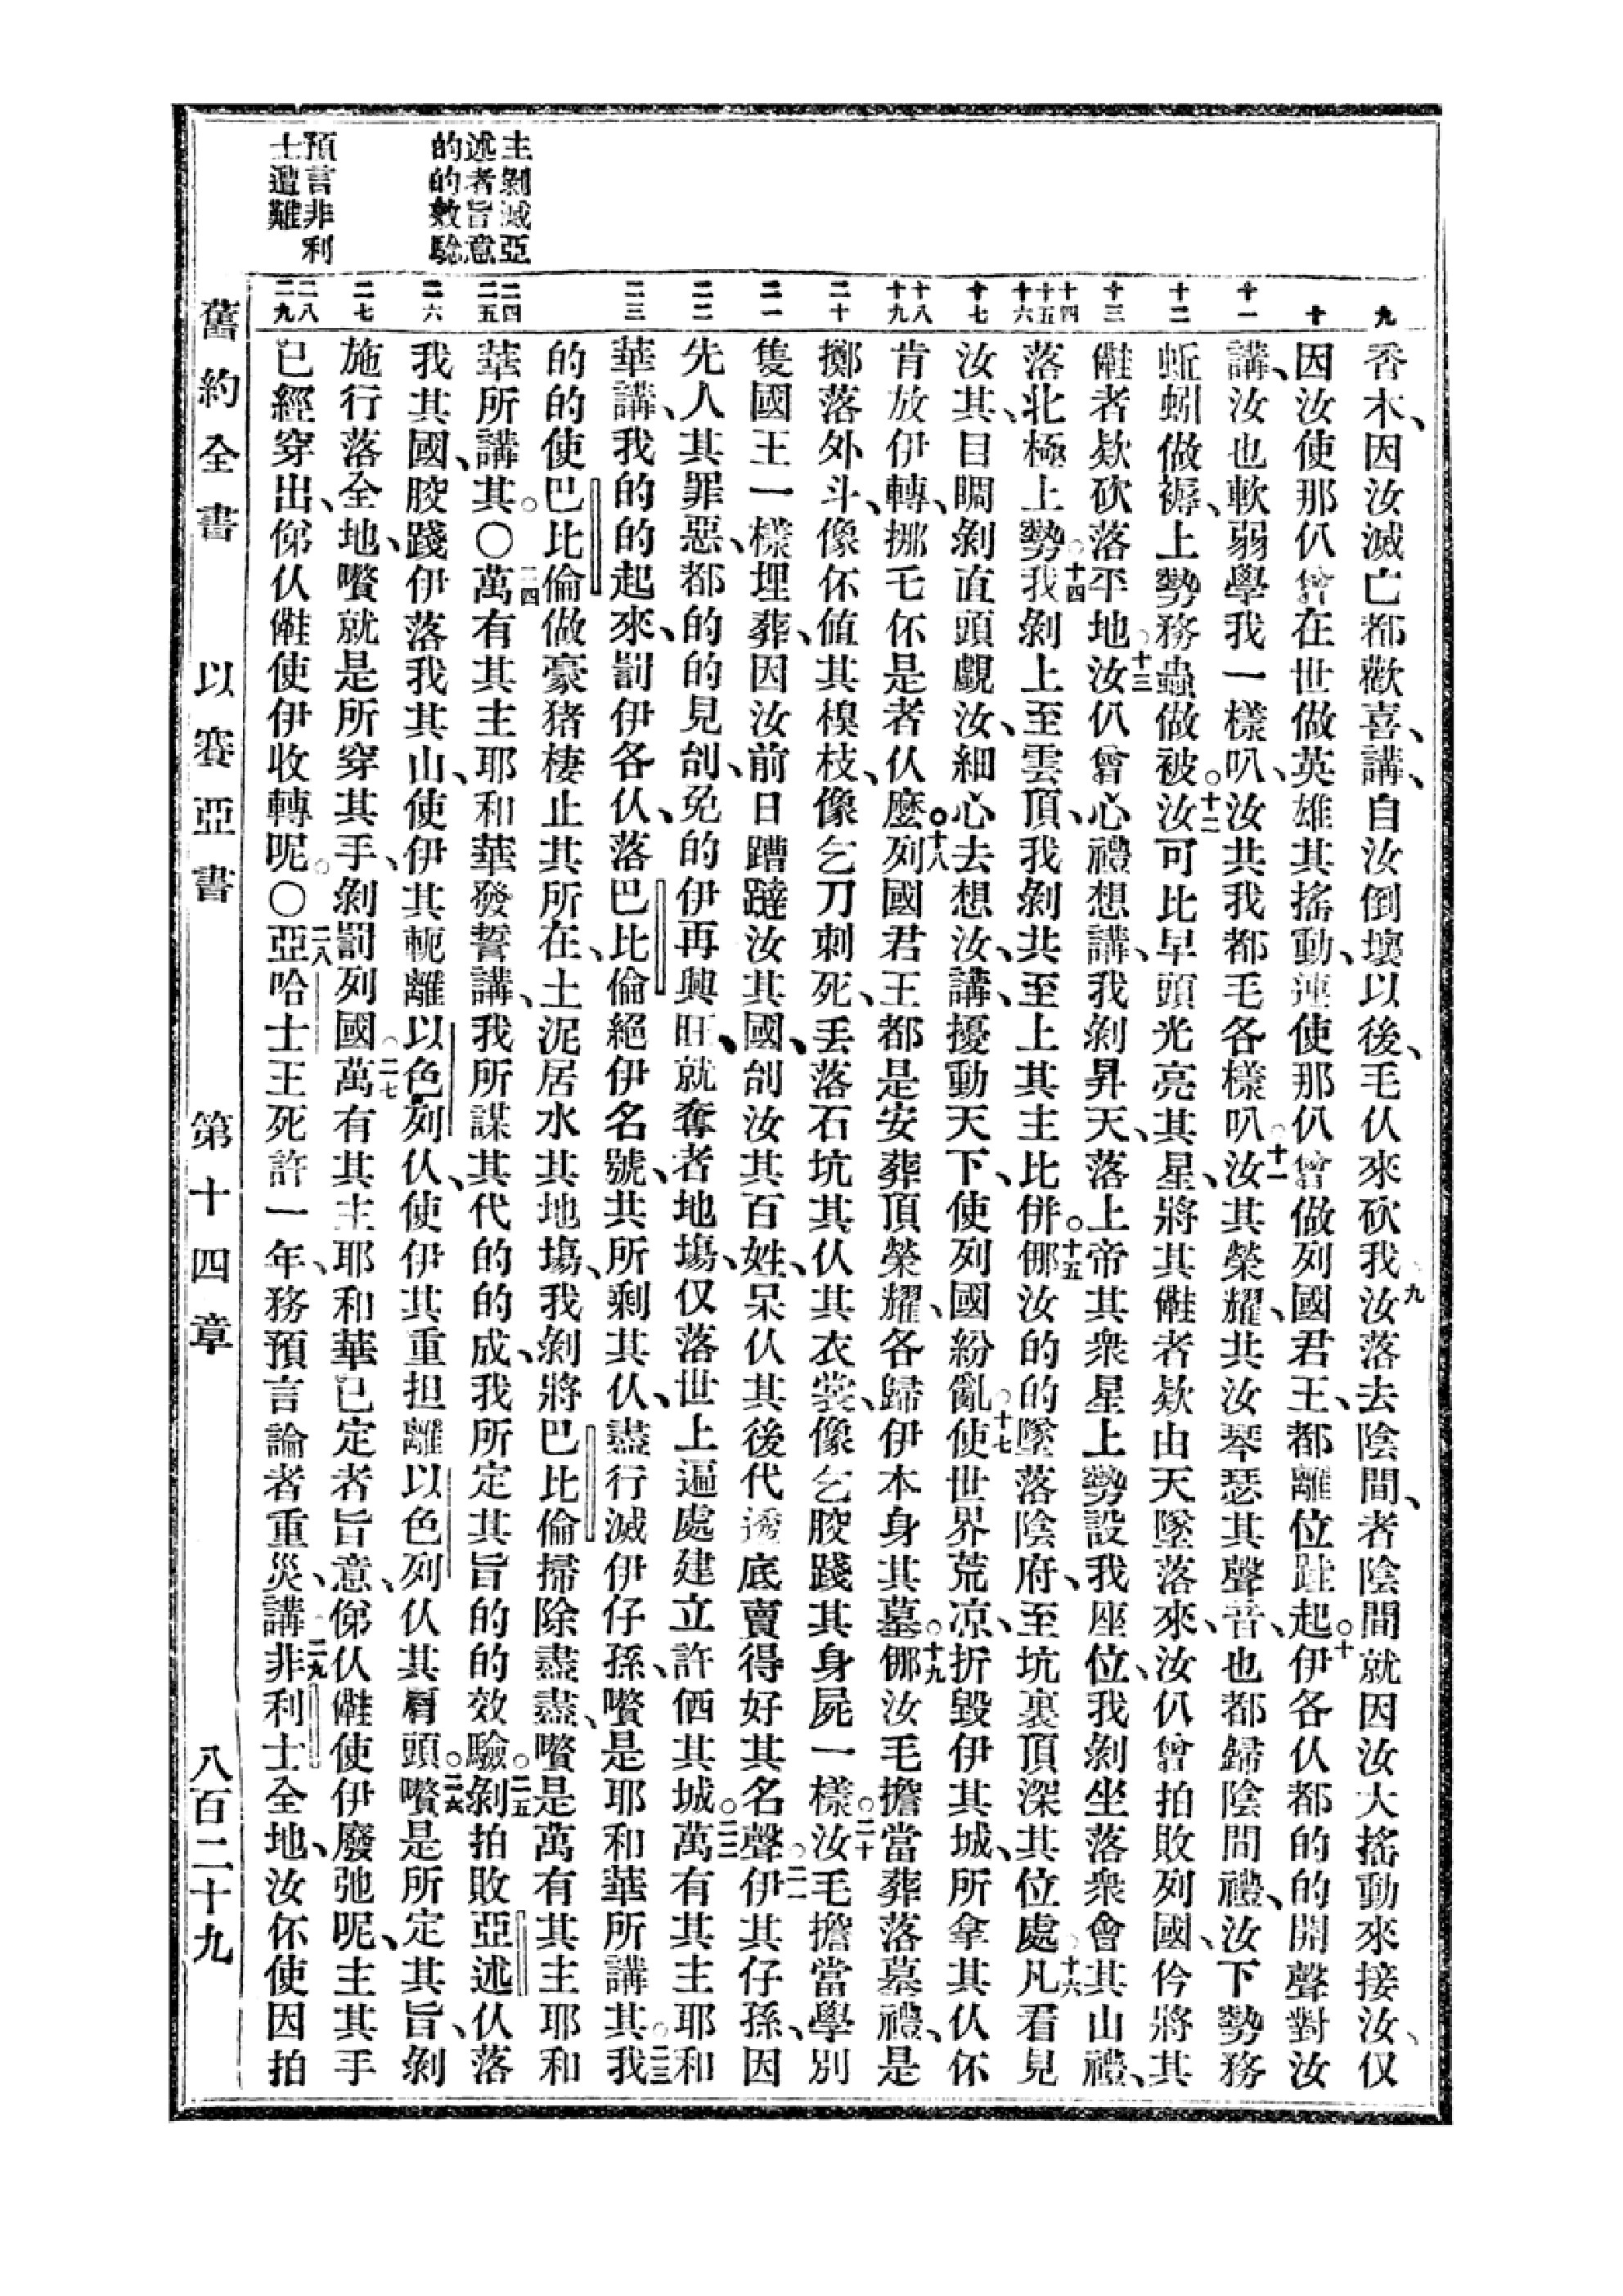 主剝滅亞
述者旨意
的的效驗
預言非利
士遭難
九
十
十一
十二
十三
十四
十五
十六
十七
十八
十九
二十
二一
二二
二三
二四
二五
二六
二七
二八
二九
香木、因汝滅亡都歡喜、講、自汝倒壞以後、毛仈來砍我九汝落去陰間、者陰間就因汝大搖動來接汝、仅
因汝使那仈曾在世做英雄其搖動、連使那仈曾做列國君王、都離位跓起。十伊各仈都的的開聲對汝
講、汝也軟弱學我一樣叭、汝共我都毛各樣叭。十一汝其榮耀、共汝琴瑟其聲音、也都歸陰間禮、汝下勢務
蚯蚓做褥、上勢務蟲做被。十二汝可比早頭光亮其星、將其僆者欵由天墜落來、汝仈曾拍敗列國、仱將其
僆者欵砍落平地。十三汝仈曾心禮想講、我剝昇天、落上帝其衆星上勢設我座位、我剝坐落衆會其山禮、
落北極上勢。十四我剝上至雲頂、我剝共至上其主比併。十五𨚫汝的的墜落陰府、至坑裏頂深其位處。十六凡看見
汝其、目瞯剝直頭覷汝、細心去想汝、講、擾動天下、使列國紛亂。十七使世界荒凉、折毀伊其城、所拿其仈伓
肯放伊轉、挪乇伓是者仈麼。十八列國君王都是安葬頂榮耀、各歸伊本身其墓。十九𨚫汝毛擔當葬落墓禮、是
擲落外斗、像伓値其樕枝、像乞刀刺死、丟落石坑其仈其衣裳、像乞䠞踐其身屍一樣。二十汝毛擔當學別
隻國王一樣埋葬、因汝前日蹧躂汝其國、刣汝其百姓、呆仈其後代透底賣得好其名聲。二一伊其仔孫、因
先人其罪惡、都的的見刣、免的伊再興旺、就奪者地塲、仅落世上逼處建立許価其城。二二萬有其主耶和
華講、我的的起來、罰伊各仈、落巴比倫絕伊名號、共所剩其仈、盡行滅伊仔孫、囋是耶和華所講其。二三我
的的使巴比倫做豪猪棲止其所在、土泥居水其地塲、我剝將巴比倫掃除盡盡、囋是萬有其主耶和
華所講其。〇二四萬有其主耶和華發誓講、我所謀其代的的成、我所定其旨的的效驗。二五剝拍敗亞述仈落
我其國、䠞踐伊落我其山、使伊其軛離以色列仈、使伊其重担離以色列仈其肩頭。二六囋是所定其旨、剝
施行落全地、囋就是所穿其手、剝罰列國。二七萬有其主耶和華已定者旨意、俤仈僆使伊廢弛呢、主其手
已經穿出、俤仈僆使伊收轉呢。〇二八亞哈士王死許一年、務預言論者重災、講、二九非利士全地、汝伓使因拍
舊約全書　以賽亞書　第十四章　八百二十九